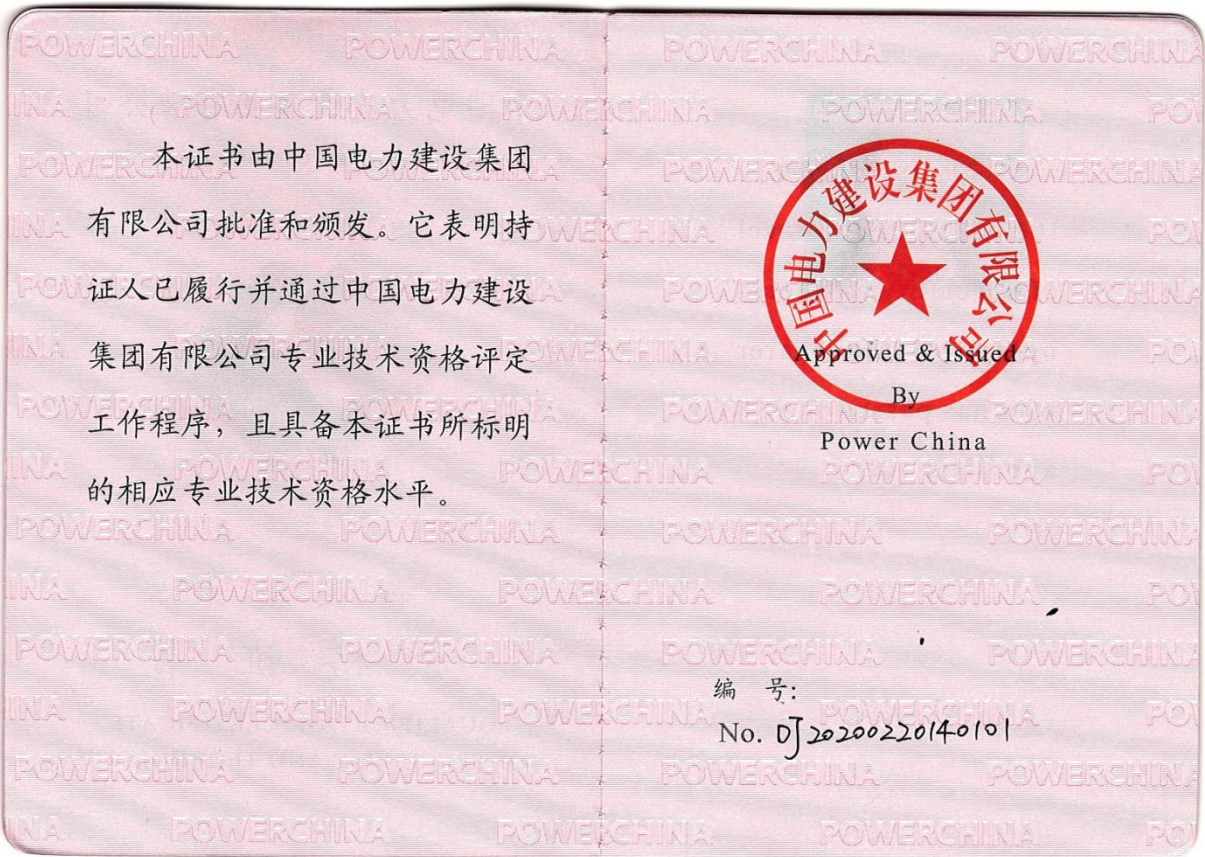 本证书由中国电力建设集团
有限公司批准和颁发。它表明持
证人已履行并通过中国电力建设
集团有限公司专业技术资格评定
工作程序，且具备本证书所标明
的相应专业技术资格水平。
中国电力建设集团有限公司
Approved & Issued
By
Power China
编 号:
No. DJ20200220140101
POWERCHINA